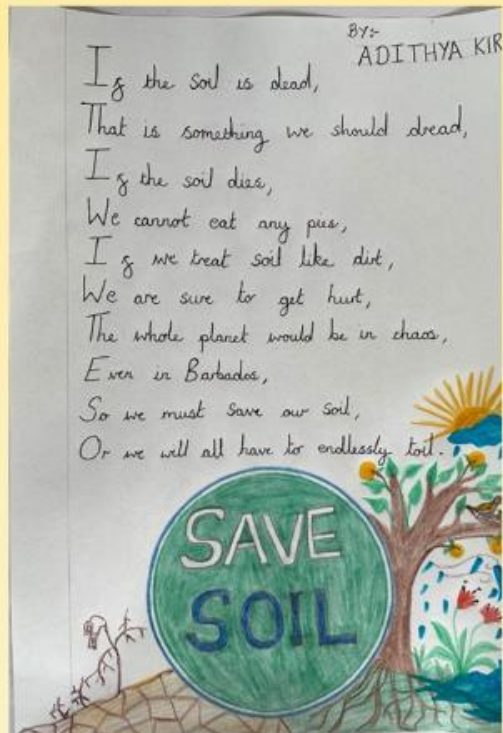 BY:-
ADITHYA KIR
If the soil is dead,
That is something we should dread,
If the soil dies,
We cannot eat any pies,
If we treat soil like dirt,
We are sure to get hurt,
The whole planet would be in chaos,
Even in Barbados,
So we must save our soil,
Or we will all have to endlessly toil.
SAVE
SOIL